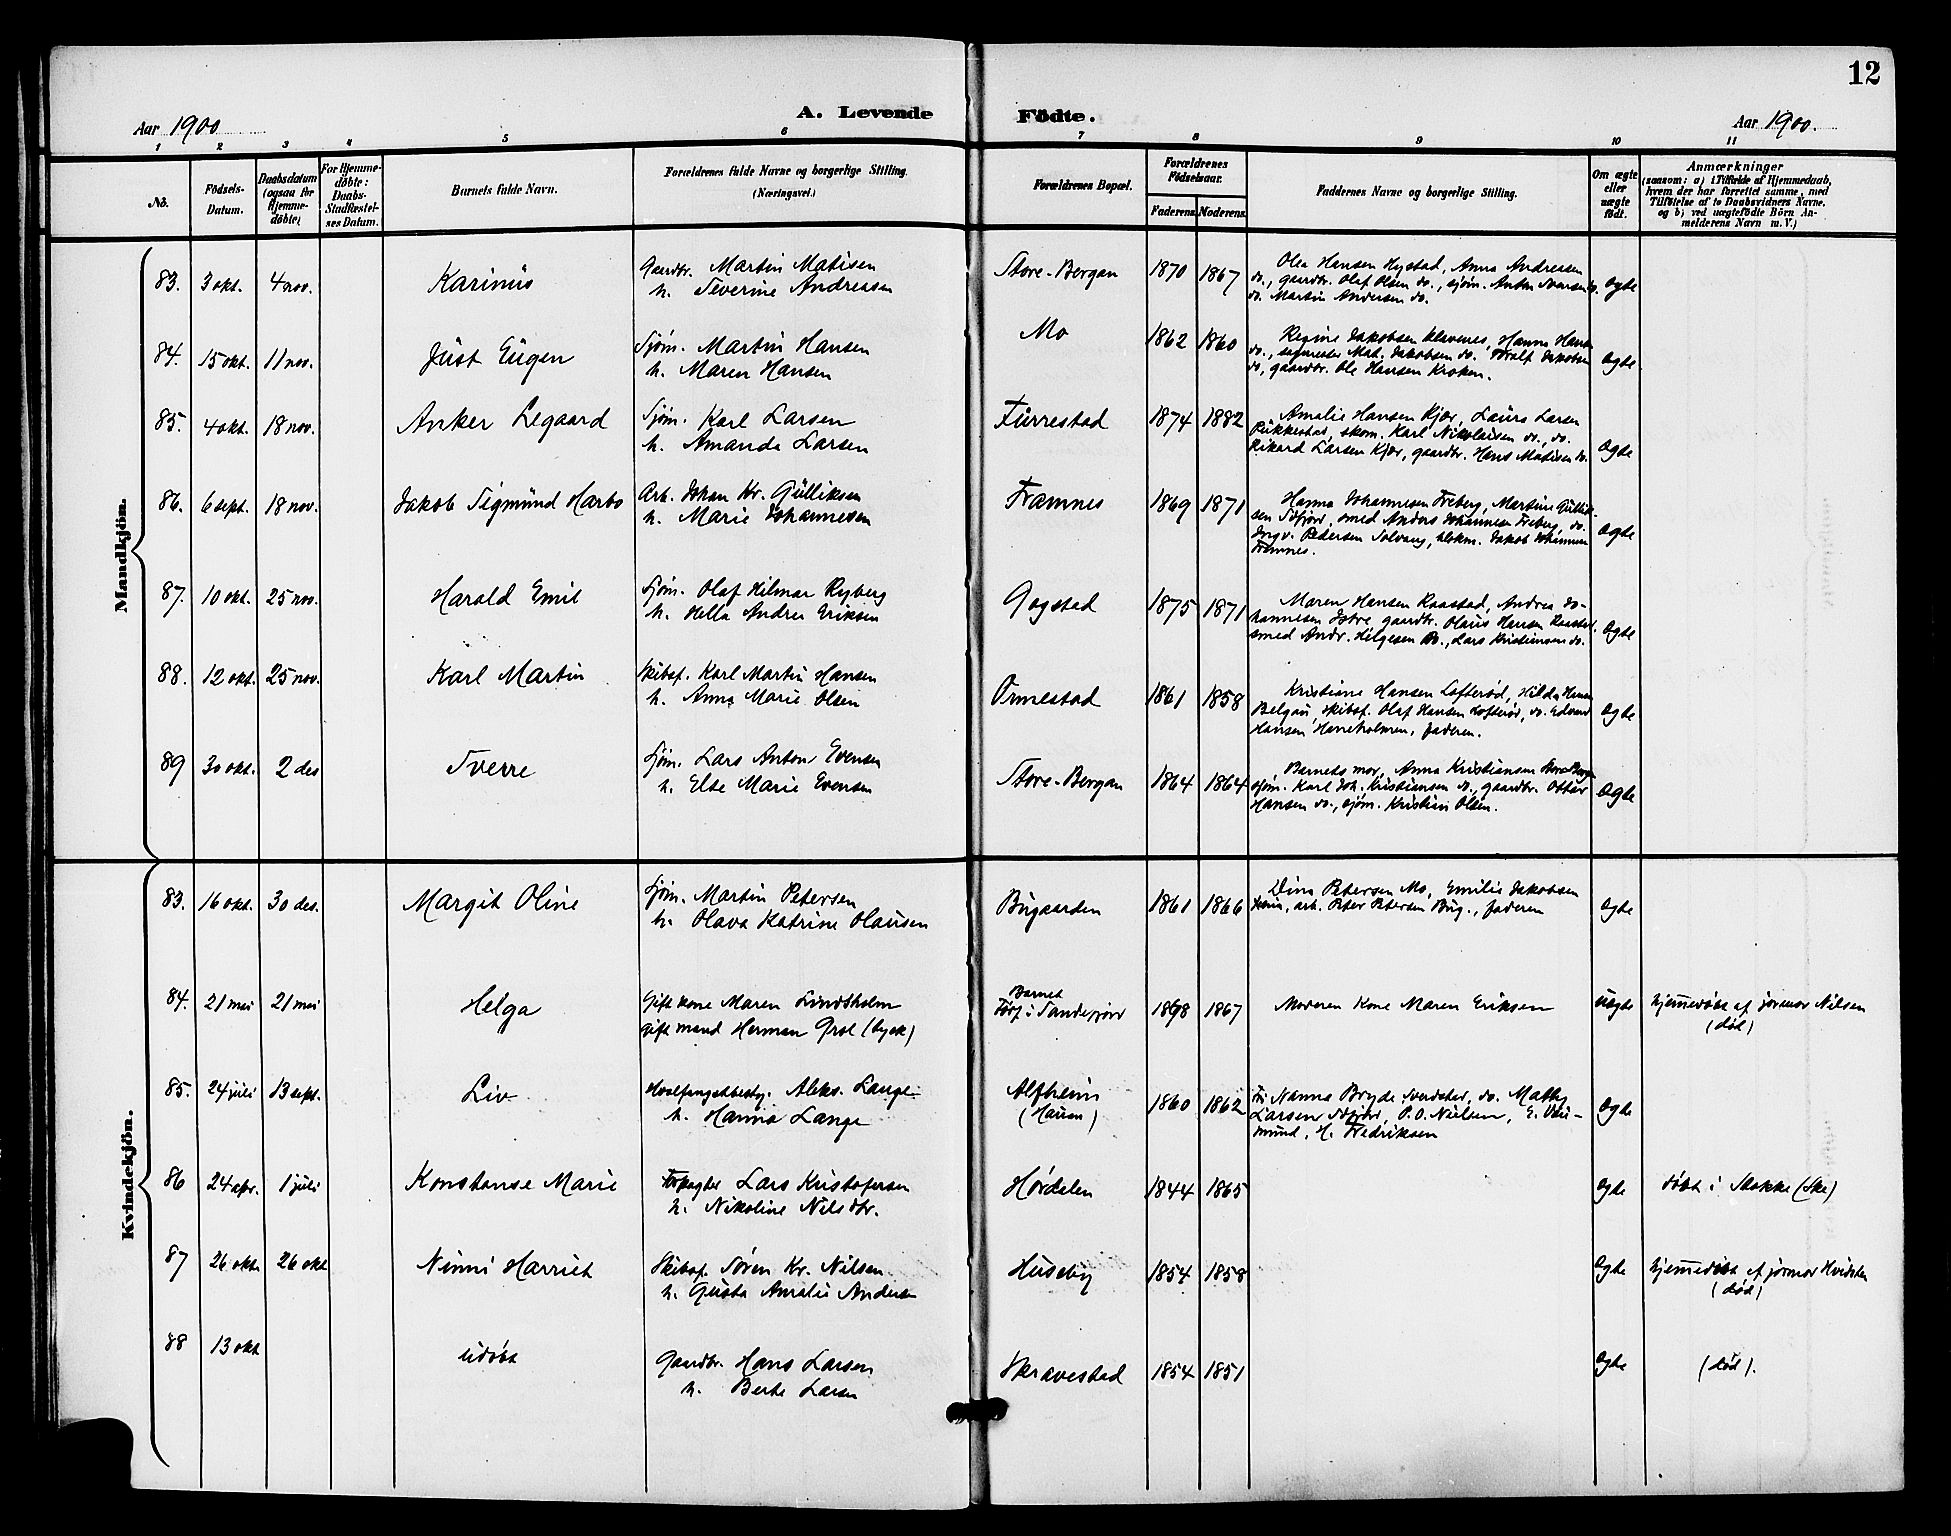 12
A. Levende Födte.
Aar 1900
Aar 1900.
1 2 3 4 5 6 7 8 9 10 11
No.
Födsels-Datum.
Daabsdatum (ogsaa for Hjemme-döbte)
For Hjemme-döbte: Daabs-Stadfæstel-ses Datum.
Barnets fulde Navn.
Forældrenes fulde Navne og borgerlige Stilling. (Næringsvei.)
Forældrenes Bopæl.
Forældrenes Födselsaar.
Faderens. Moderens.
Faddernes Navne og borgerlige Stilling.
Om ægte eller uægte födt.
Anmærkninger
(saasom: a) i Tilfælde af Hjemmedaab,
hvem der har forrettet samme, med
Tilföielse af to Daabsvidners Navne,
og b) ved uægtefödte Börn An-
melderens Navn m. V.)
Mandkjön.
83. 3 okt. 4 nov. Karinus Gaardbr. Martin Matisen
h. Severine Andreasen
Store-Bergan 1870 1867 Olea Hansen Hystad, Anna Andreasen
do., gaardbr. Olaf Olsen do., sjøm. Anton Svensen do.
do. Martin Andersen do.
Ægte
84. 15 okt. 11 nov. Just Eugen Sjøm. Martin Hansen
h. Maren Hansen
Mo 1862 1860 Regine Jakobsen Klavenes, Hanna Hansen
do., Mat. Jakobsen do. Jakobsen
do., gaardbr. Ole Hansen Kroken.
Ægte
85. 4 okt. 18 nov. Anker Legaard Sjøm. Karl Larsen
h. Amanda Larsen
Furrestad 1874 1882 Amalie Hansen Kjær, Laura Larsen
Rukkestad, skom. Karl Nikolaisen do., do.
Rikard Larsen Kjær, gaardbr. Hans Matisen do.
Ægte
86. 6 sept. 18 nov. Jakob Sigmund Harbo Arb. Johan Kr. Gulliksen
h. Marie Johannesen
Framnes 1869 1871 Hanna Johannesen Freberg, Martine Gullik-
sen Sdfjord, smed Anders Johannesen Freberg, do.
Ingv. Petersen Solvang, blokm. Jakob Johannesen
Framnes.
Ægte
87. 10 okt. 25 nov. Harald Emil Sjøm. Olaf Hilmar Ryberg
h. Hella Andrea Eriksen
Gogstad 1875 1871 Maren Hansen Raastad, Andrea Jo-
hannesen Istre gaardbr. Olaus Hansen Raastad,
smed Andr. Helgesen do., Lars Kristiansen do.
Ægte
88. 12 okt. 25 nov. Karl Martin Skibsf. Karl Martin Hansen
h. Anna Marie Olsen
Ormestad 1861 1858 Kristiane Hansen Lofterød, Hilda Hansen
Belgau, skibsf. Olaf Hansen Lofterød, do. Edvard
Hansen Haneholmen, faderen.
Ægte
89 30 okt. 2 des Sverre Sjøm. Lars Anton Evensen
h. Else Marie Evensen
Store-Bergan 1864 1864 Barnets mor, Anna Kristiansen Store Bergan
sjøm. Karl Joh. Kristiansen do., gaardbr. Ottar
Hansen do., sjøm. Kristian Olsen.
Ægte
Kvindekjön.
83. 16 okt. 30 des. Margit Oline Sjøm. Martin Petersen
h. Olava Katrine Olausen
Bugaarden 1861 1866 Dina Petersen Mo, Emilie Jakobsen
arb. Peter Petersen Bug., faderen
Ægte
84. 21 mai 21 mai Helga Gift kone Maren Lindholm
gift mand Herman Grol (tysk)
Barnet
Født i Sandefjord 1868 1867 Moderen Kone Maren Eriksen
uægte hjemmedøbt af jormor Nilsen
(død)
85. 24 juli 13 sept. Liv Hvalfangstbesty. Aleks. Lange
h. Hanna Lange
Alfheim
(Hauen) 1860 1862 Fr. Nanna Bryde Sverdstad, do. Mathy
Larsen Sdfjord, P. O. Nielsen, E. Vei-
mund, H. Fredriksen
Ægte
86 24 apr. 1 juli Konstanse Marie Forpagter Lars Kristofersen
h. Nikoline Nilsdtr.
Hørdalen 1844 1865
Ægte døbt i Stokke (Ske)
87 26 okt. 26 okt Ninni Harriet Skibsf. Søren Kr. Nilsen
h. Gusta Amalie Andersen
Huseby 1854 1858
Ægte hjemmedøbt af jormor Hvidsten
(død)
88 13 okt udøbt Gaardbr. Hans Larsen
h. Berte Larsen
Skravestad 1854 1851
Ægte (død).